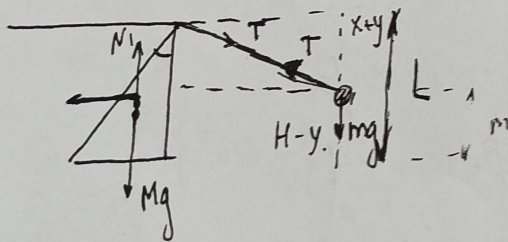 N₁ T T x+y
L
H-y. mg
Mg
m